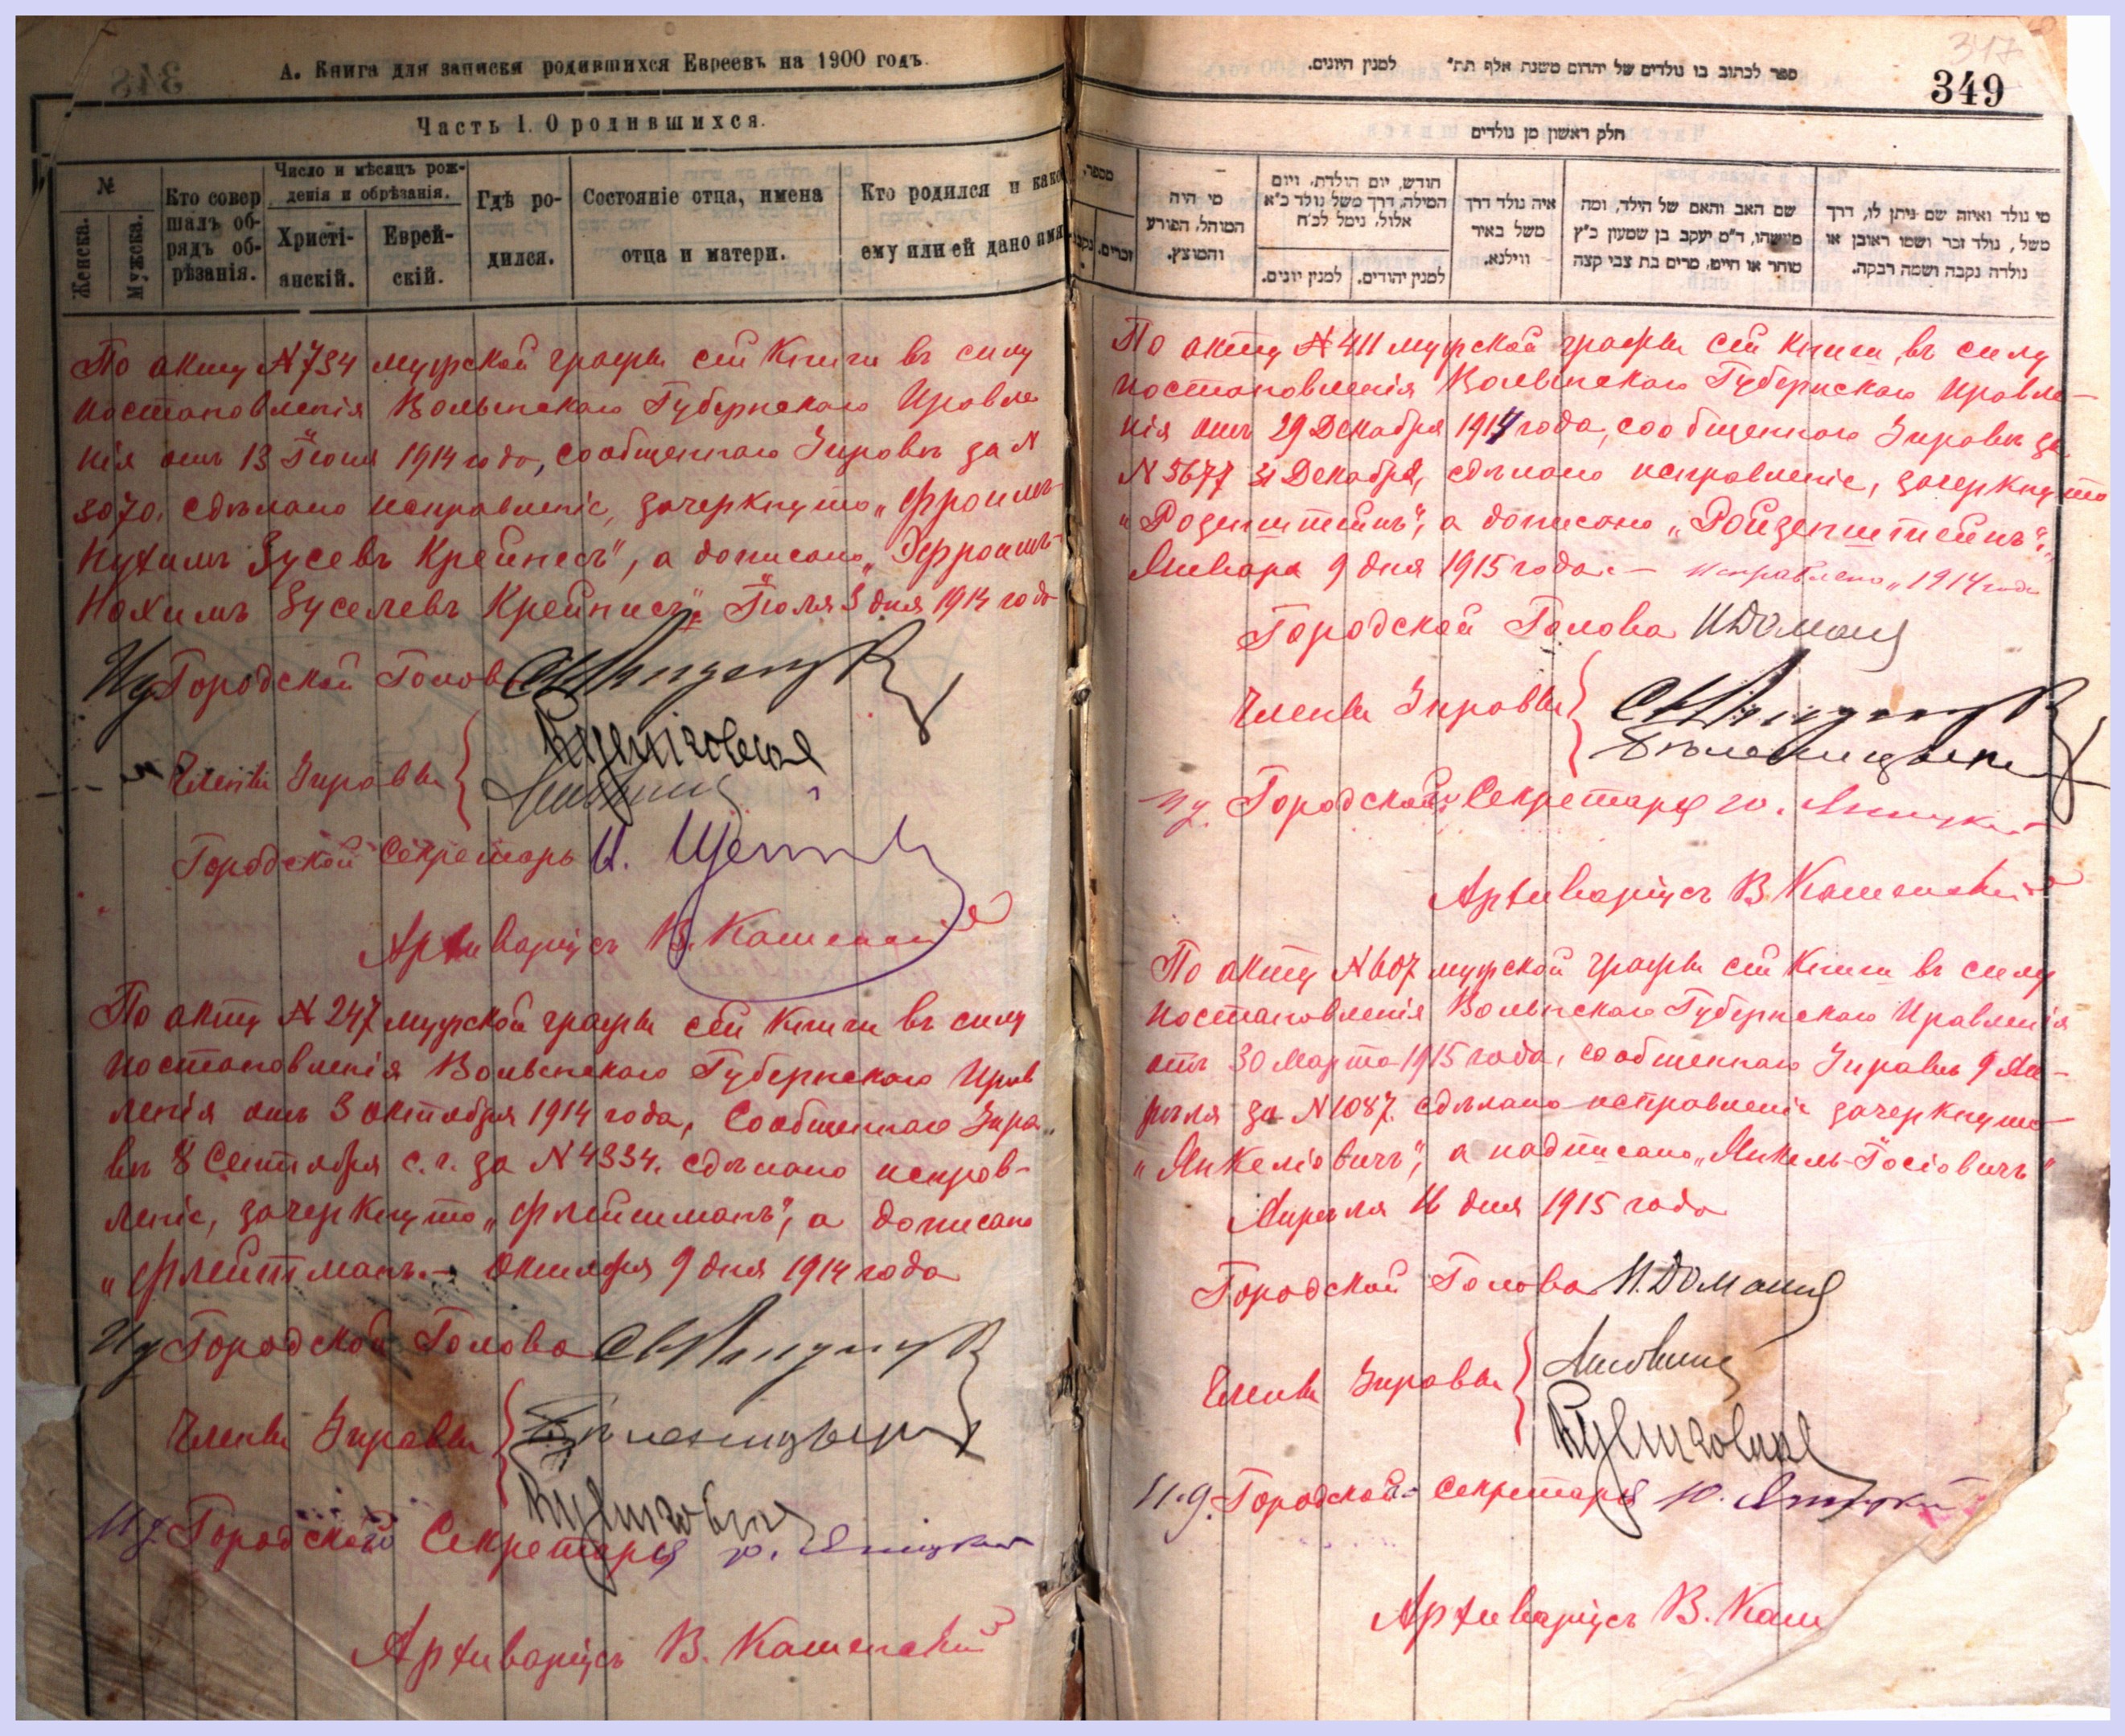 А. Книга для записки родившихся Евреевъ на 1900 годъ.
Часть I. О родившихся.
№
Женска.
Мужска.
Кто совершалъ обрядъ обрѣзанія.
Число и мѣсяцъ рожденія и обрѣзанія.
Христіанскій.
Еврейскій.
Гдѣ родился.
Состояніе отца, имена отца и матери.
Кто родился и како
ему или ей дано имя
По акту № 734 мужской графы сей книги въ силу
постановленія Волынскаго Губернскаго Правле
нія отъ 13 Іюня 1914 года, сообщеннаго Управѣ за №
3070, сдѣлано исправленіе, зачеркнуто „Фроимъ-
Нухимъ Зусевъ Крейнесъ", а дописано „Эфроимъ-
Нахимъ Зуселевъ Крейнисъ". Іюля 3 дня 1914 года
Ид Городской Голова
Члены Управы
Городской Секретарь И.
Архиваріусъ В.
По акту № 247 мужской графы сей книги въ силу
постановленія Волынскаго Губернскаго Прав
ленія отъ 3 октября 1914 года, сообщеннаго Упра
вѣ 8 Сентября с. г. за № 4334, сдѣлано исправ-
леніе, зачеркнуто „Флейшманъ", а дописано
„Флейтманъ. — Октября 9 дня 1914 года
Ид Городской Голова
Члены Управы
Ид Городского Секретаря Ю.
Архиваріусъ В.
ספר לכתוב בו נולדים של יהדום משנת אלף תת״ למנין היונים.
347
349
חלק ראשון מן נולדים
מספר.
נקבו
זכרים.
מי היה
המוהל, הפורע
והמוצץ.
חודש, יום הולדת, ויום
המילה, דרך משל נולד כ״א
אלול, נימל לכ״ח
למנין יונים.
למנין יהודים.
איה נולד דרך
משל באיר
ווילנא.
שם האב והאם של הילד, ומה
מיישהו, ד״מ יעקב בן שמעון כ״ץ
סוחר או חייט, מרים בת צבי קצה
מי נולד ואיזה שם ניתן לו, דרך
משל, נולד זכר ושמו ראובן או
נולדה נקבה ושמה רבקה.
По акту № 411 мужской графы сей книги, въ силу
постановленія Волынскаго Губернскаго Правле-
нія отъ 29 Декабря 1914 года, сообщеннаго Управѣ за
№ 5677 31 Декабря, сдѣлано исправленіе, зачеркнуто
„Розенштейнъ", а дописано „Ройзенштейнъ".
Января 9 дня 1915 года. — Исправлено „1914 года
Городской Голова И Доманя
Члены Управы
Ид. Городского Секретаря Ю.
Архиваріусъ В
По акту № 607 мужской графы сей книги въ силу
постановленія Волынскаго Губернскаго Правленія
отъ 30 Марта 1915 года, сообщеннаго Управѣ 9 Ап-
рѣля за № 1087. сдѣлано исправленіе зачеркнуто
„Янкеліовичъ", а надписано „Янкель-Іосіовичъ"
Апрѣля 16 дня 1915 года
Городской Голова И. Доманя
Члены Управы
И.д. Городского Секретаря Ю.
Архиваріусъ В. Каш